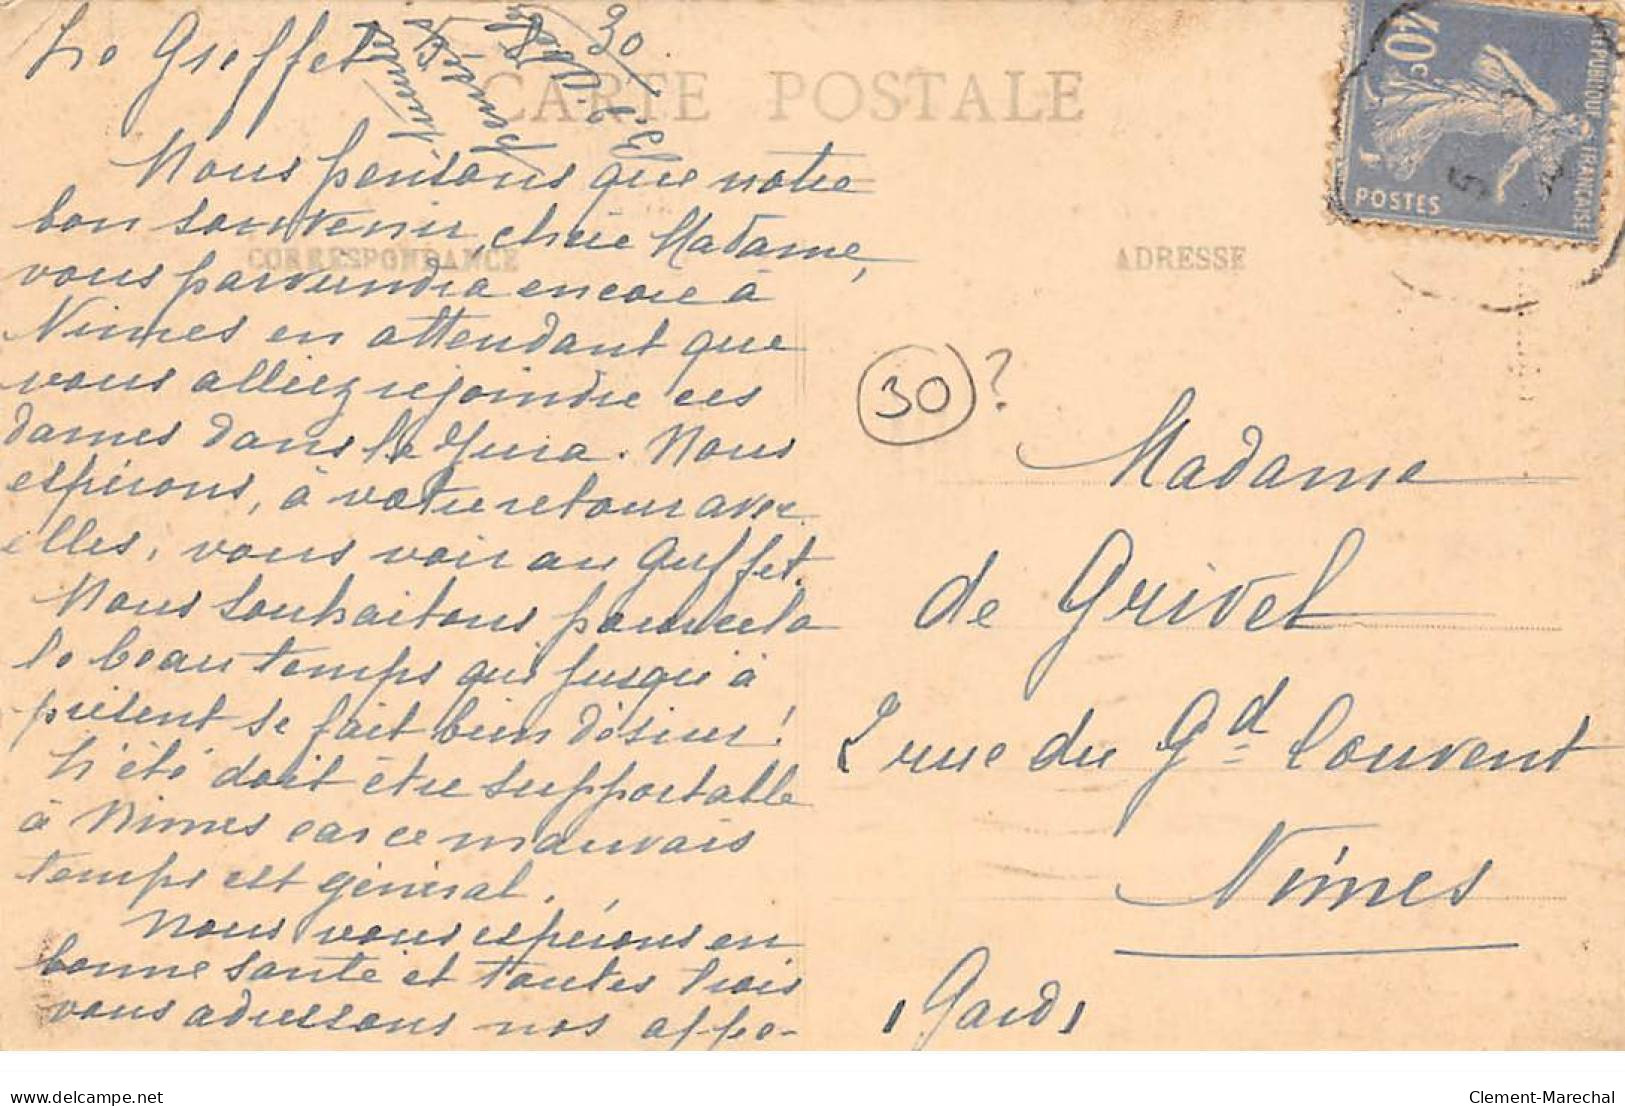 Le Greffet 5 - 8 30
CARTE POSTALE
Nous pensons que notre
bon souvenir, chère Madame,
CORRESPONDANCE
vous parviendra encore à
Nimes en attendant que
vous alliez rejoindre ces
dames dans le Jura. Nous
espérons, à votre retour avec
elles, vous voir au Greffet.
Nous souhaitons pour cela
le beau temps qui jusqu'à
présent se fait bien désirer!
L'été doit être supportable
à Nimes car ce mauvais
temps est général.
Nous vous espérons en
bonne santé et toutes trois
vous adressons nos affec-
40c
REPUBLIQUE FRANCAISE
POSTES
5
ADRESSE
30 ?
Madame
de Grivel
2 rue du Gd Couvent
Nîmes
(Gard)
delcampe.net
Clement-Marechal